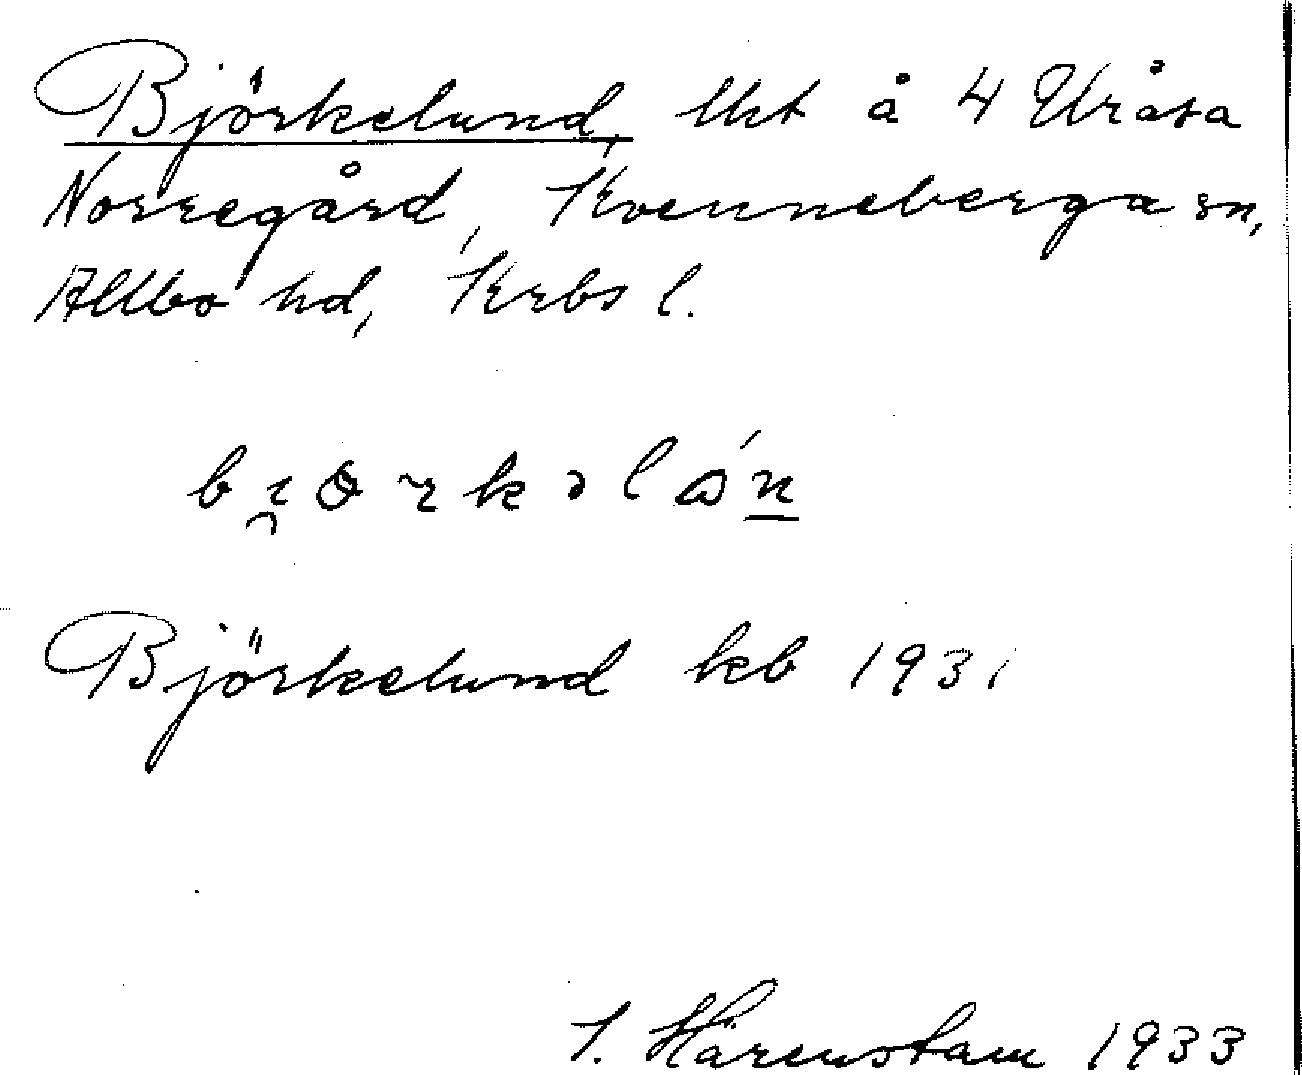 Björkelund, lht å 4 Uråsa
Norregård, Kvenneberga sn,
Allbo hd, Krbs l.
Björkelund kb 1931
S. Härenstam 1933